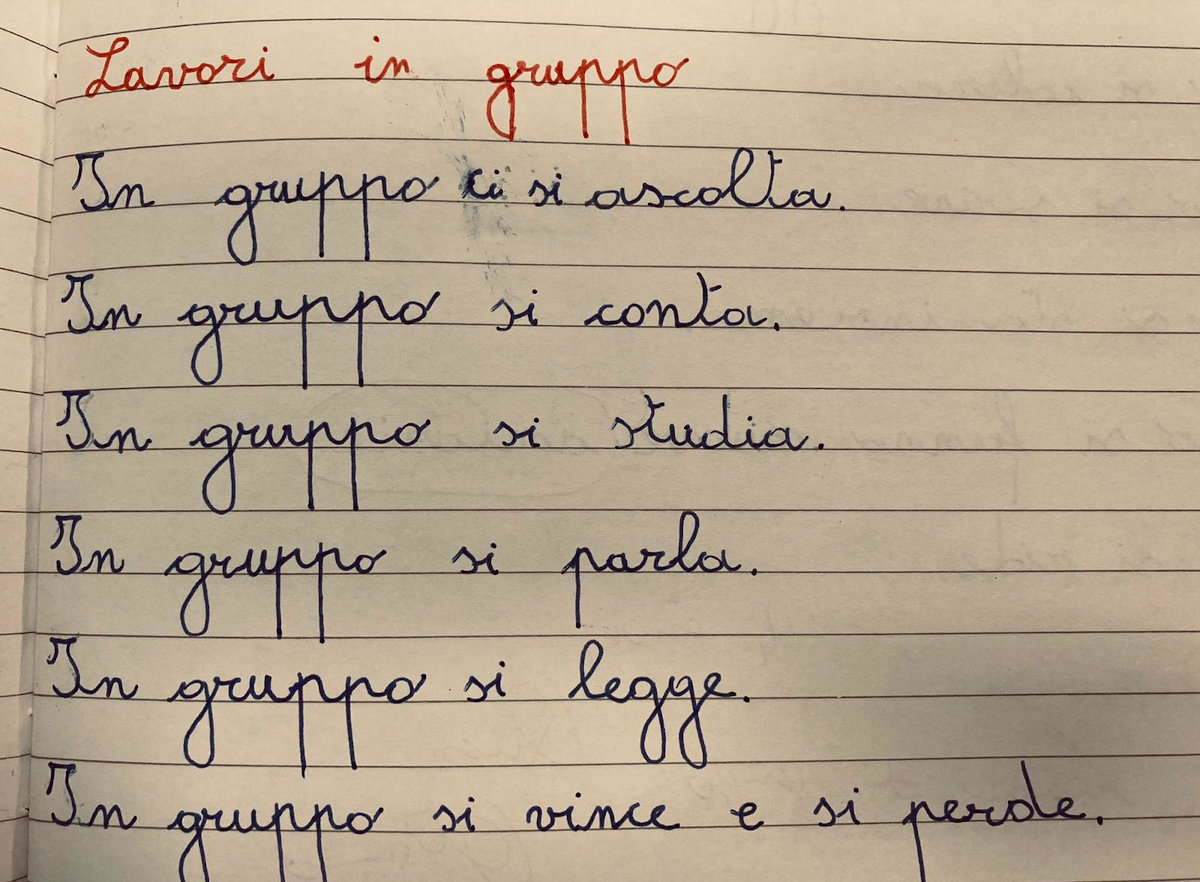 Lavori in gruppo
In gruppo ci si ascolta.
In gruppo si conta.
In gruppo si studia.
In gruppo si parla.
In gruppo si legge.
In gruppo si vince e si perde.